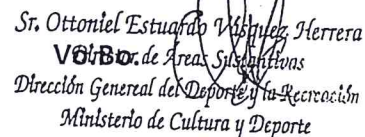 Sr. Ottoniel Estuardo Vásquez Herrera
Vo.Bo. de Áreas Sustantivas
Dirección Genereal del Deporte y la Recreación
Ministerio de Cultura y Deporte